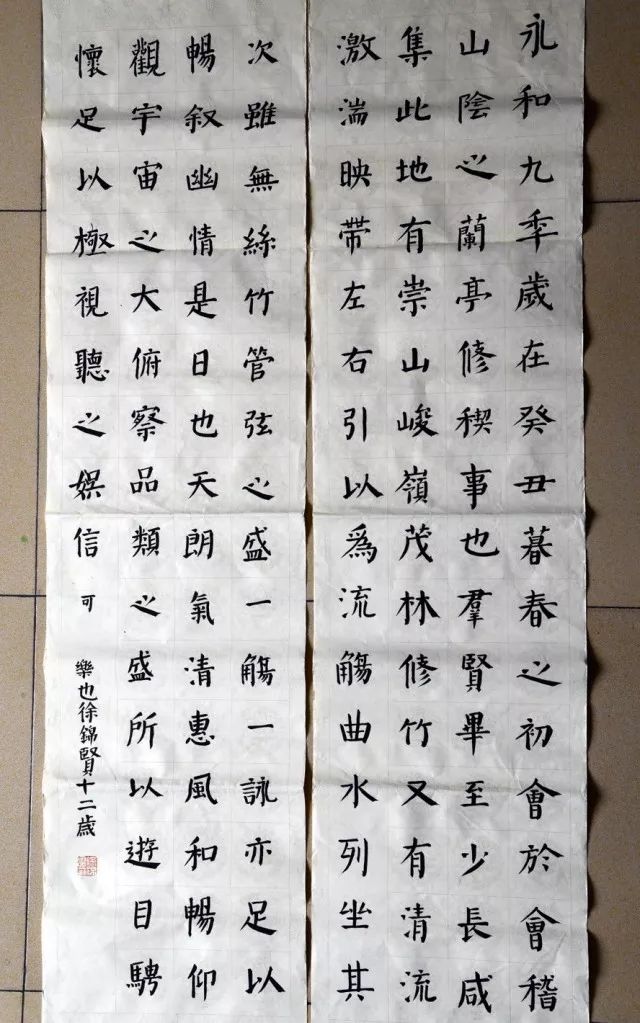 永和九秊歲在癸丑暮春之初會於會稽
山陰之蘭亭修稧事也羣賢畢至少長咸
集此地有崇山峻嶺茂林修竹又有清流
激湍映帶左右引以為流觴曲水列坐其
次雖無絲竹管弦之盛一觴一詠亦足以
暢叙幽情是日也天朗氣清惠風和暢仰
觀宇宙之大俯察品類之盛所以遊目騁
懷足以極視聽之娛信可樂也徐錦賢十二歲